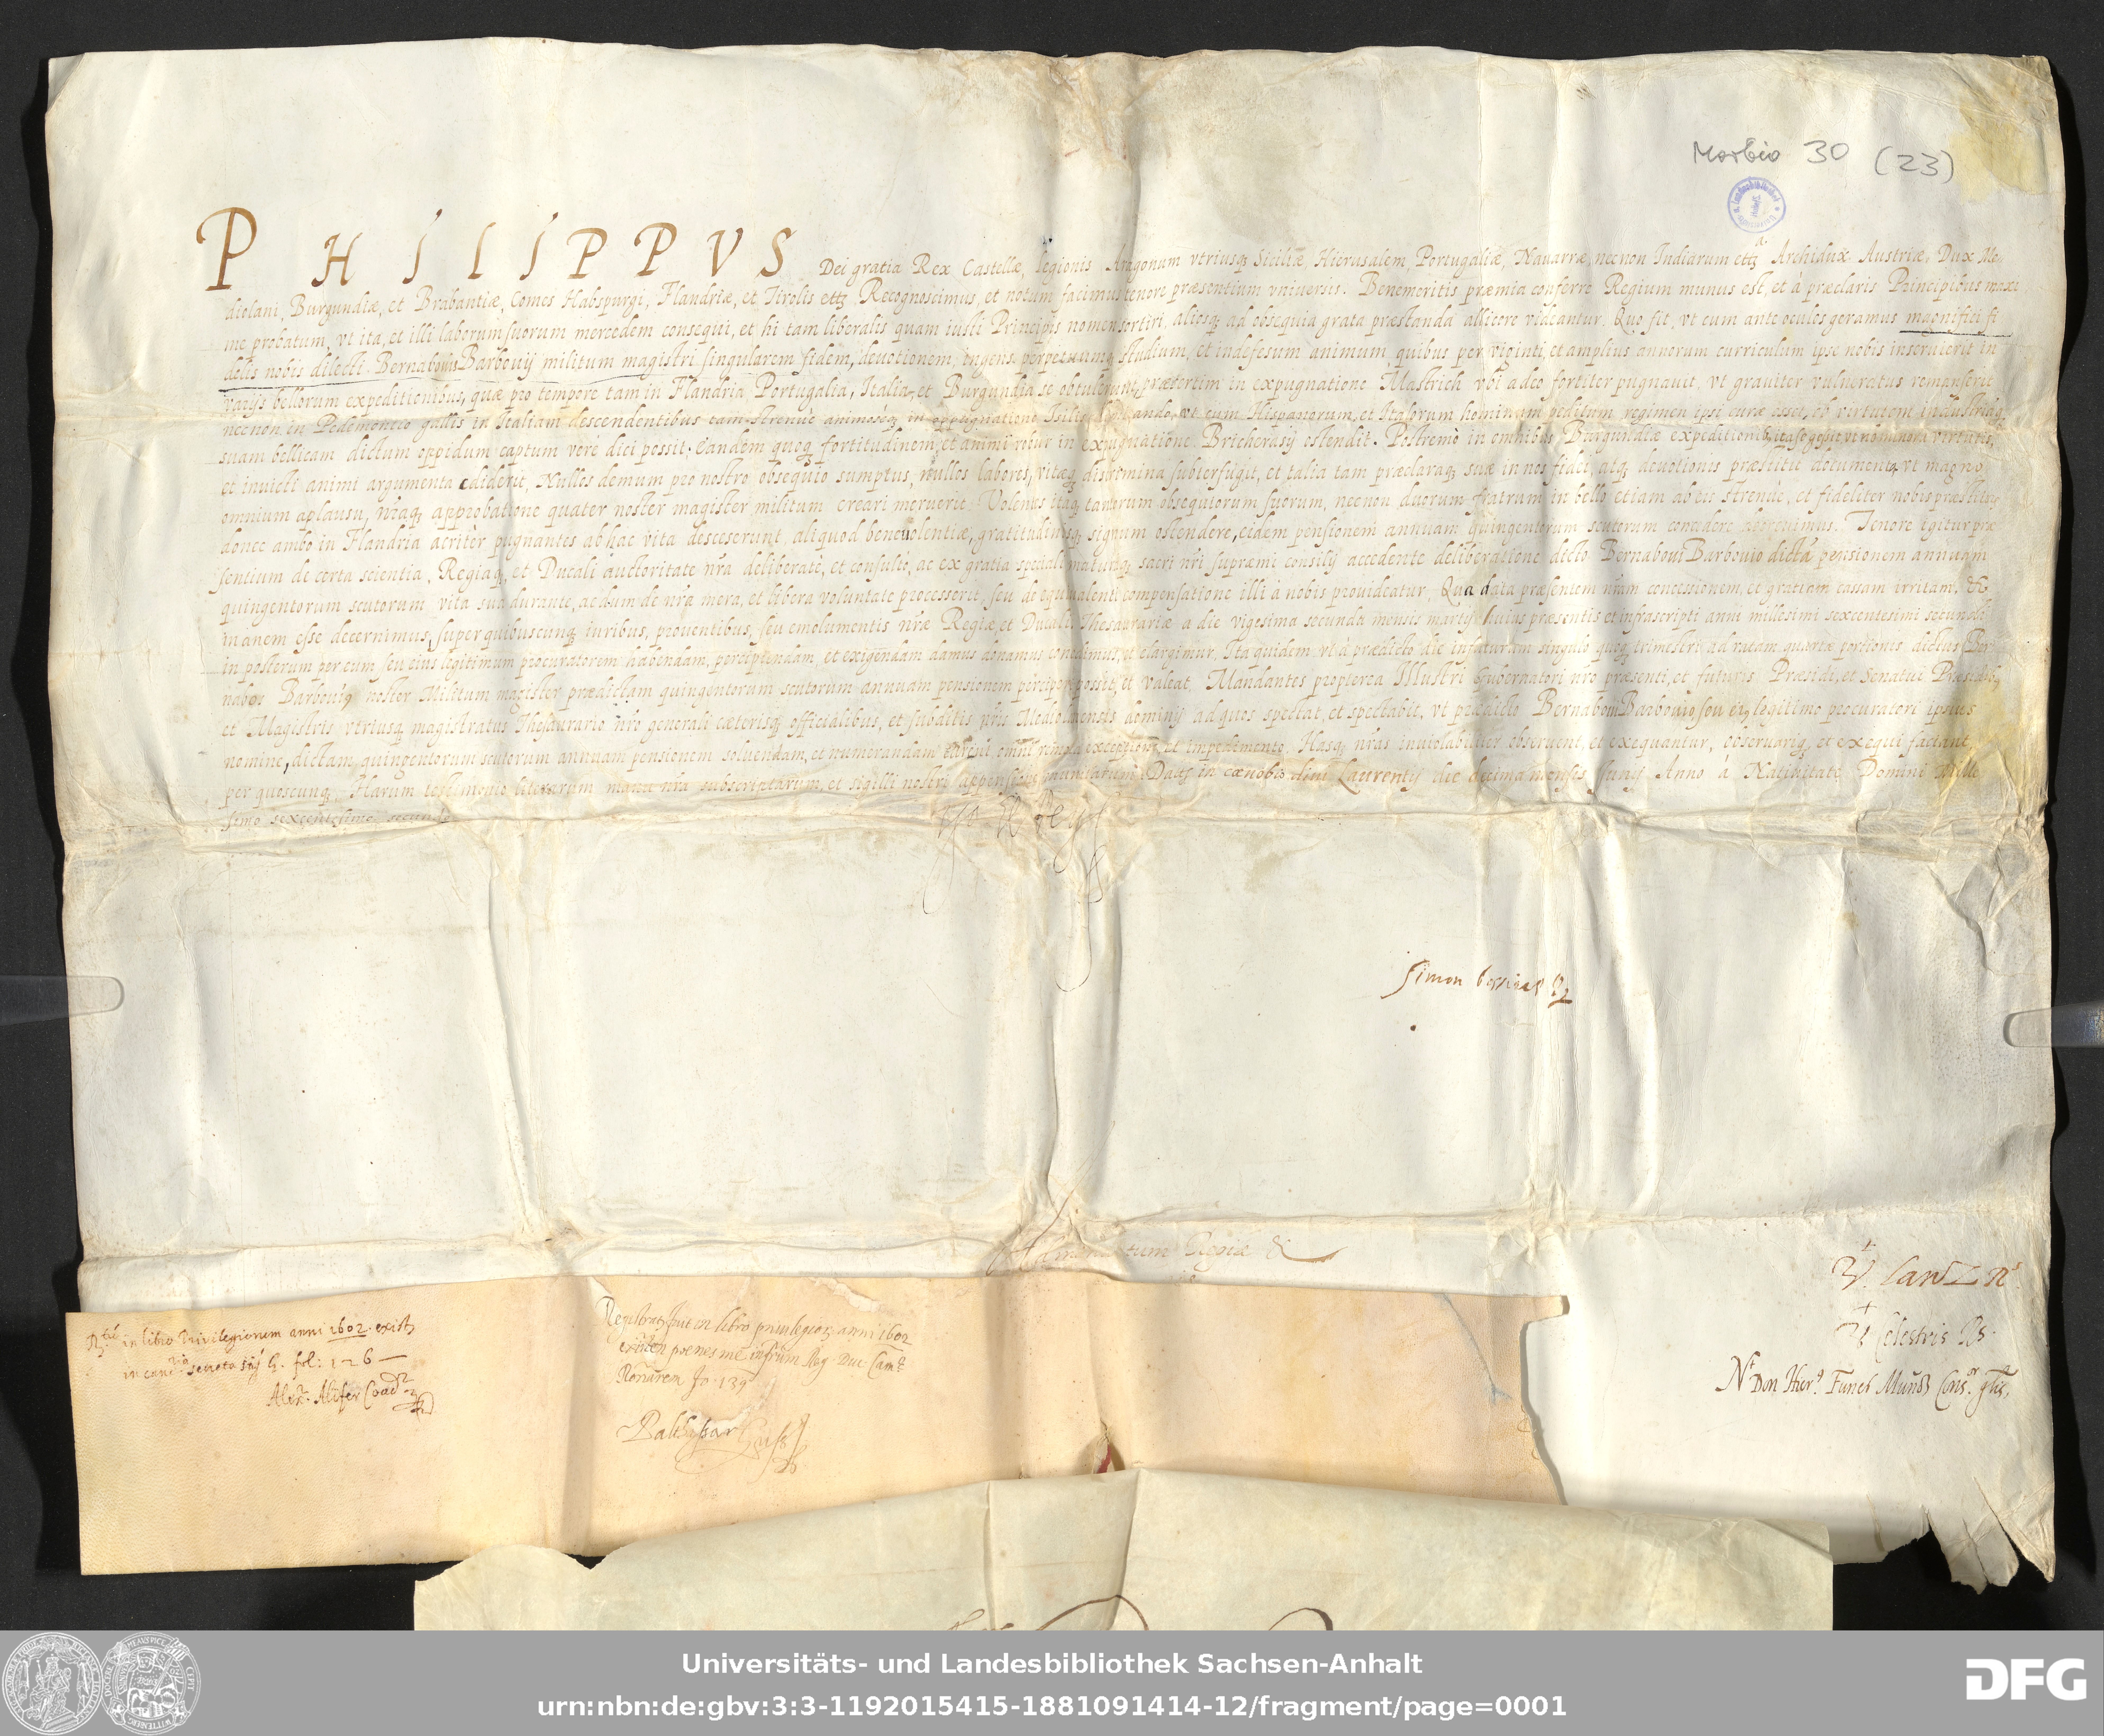 Morbio 30 (23)
PHILIPPVS Dei gratia Rex Castellæ, legionis Aragonum vtriusq; Siciliæ, Hierusalem, Portugaliæ, Nauarræ, necnon Indiarum ettz. Archidux Austriæ, Dux Me,
diolani, Burgundiæ, et Brabantiæ, Comes Habspurgi, Flandriæ, et Tirolis ettz. Recognoscimus, et notum facimus tenore præsentium vniuersis. Benemeritis præmia conferre Regium munus est, et à præclaris Principibus maxi
me probatum, vt ita, et illi laborum suorum mercedem consequi, et hi tam liberalis quam iusti Principis nomen sortiri, aliosq; ad obsequia grata præstanda allicere videantur. Quo fit, vt cum ante oculos geramus magnifici fi
delis nobis dilecti Bernabouis Barbouij militum magistri singularem fidem, deuotionem, ingens perpetuumq; studium, et indefesum animum quibus per viginti, et amplius annorum curriculum ipse nobis inseruierit in
varijs bellorum expeditionibus, quæ pro tempore tam in Flandria Portugalia, Italia, et Burgundia se obtulerunt, præsertim in expugnatione Mastrich vbi adeo fortiter pugnauit, vt grauiter vulneratus remanserit
necnon in Pedemontio gallis in Italiam descendentibus tam strenuè animoseq; in oppugnatione vt cum Hispanorum, et Italorum hominum peditum regimen ipsi curæ esset, ob virtutem industriaq;
suam bellicam dictum oppidum captum verè dici possit. Eandem quoq; fortitudinem, et animi robur in expugnatione Bricherasij ostendit. Postremò in omnibus Burgundiæ expeditionib; ita se gessit, vt non minora virtutis,
et inuicti animi argumenta ediderit, Nullos demum pro nostro obsequio sumptus, nullos labores, vitæq; discrimina subterfugit, et talia tam præclaraq; suæ in nos fidei, atq; deuotionis præstitit documenta, vt magno
omnium aplausu, nraq; approbatione quater noster magister militum creari meruerit. Volentes itaq; tantorum obsequiorum suorum, necnon duorum fratrum in bello etiam ab eis strenuè, et fideliter nobis præstitor;
donec ambo in Flandria acritèr pugnantes ab hac vita descesserunt, aliquod beneuolentiæ, gratitudinisq; signum ostendere, eidem pensionem annuam quingentorum scutorum concedere decreuimus. Tenore igitur præ
sentium de certa scientia, Regiaq; et Ducali auctoritate nra deliberatè, et consultò, ac ex gratia speciali maturaq; sacri nri supræmi consilij accedente deliberatione dicto Bernaboui Barbouio dictã pensionem annuam
quingentorum scutorum vita sua durante, ac dum de nra mera, et libera voluntate processerit, seu de equiualenti compensatione illi à nobis prouideatur, Qua data præsentem nram concessionem, et gratiam cassam irritam, &
inanem esse decernimus, super quibuscunq; iuribus, prouentibus, seu emolumentis nræ Regiæ, et Ducalis Thesaurariæ a die vigesima secunda mensis martij huius præsentis et infrascripti anni millesimi sexcentesimi secundi
in posterum per eum seu eius legitimum procuratorem habendam, percipiendam, et exigendam damus donamus concedimus, et elargimur, Ita quidem vt à prædicto die infuturum singulo quoq; trimestri ad ratam quartæ portionis dictus Ber
nabos Barbouius noster Militum magister prædictam quingentorum scutorum annuam pensionem percipere possit, et valeat. Mandantes propterea Illustri Gubernatori nro præsenti, et futuris Præsidi, et Senatui Præsidib;
et Magistris vtriusq; magistratus Thesaurario nro generali cæterisq; officialibus, et subditis nris Mediolanensis dominij ad quos spectat, et spectabit, vt prædicto Bernaboui Barbouio seu eius legitimo procuratori ipsius
nomine, dictam quingentorum scutorum annuam pensionem soluendam, et numerandam curent omni remota exceptione, et impedimento, Hasq; nras inuiolabiliter obseruent, et exequantur, obseruariq; et exequi faciant
per quoscunq; Harum testimonio literarum manu nra subscriptarum, et sigilli nostri appensione munitarum. Datis in cænobio diui Laurentij die decima mensis Junij Anno à Natiuitate Domini Mille
simo sexcentesimo secundo
Yo el Rey
Simon
tum Regiæ &
Vt. Lanz Rs
Vt Celestris Rs.
Vt Don Hier.o Funes Muñoz Cons.or g.lis,
R.ta in libro Priuilegiorum anni 1602. exist.
in canc.ria secreta sig. G. fol: 126
Alex. Alifer Coad.r
Registrat. fuit in libro priuilegior. anni 1602
existen poenes me Reg. Duc. Cam.
fo. 139
Balthasar
Universitäts- und Landesbibliothek Sachsen-Anhalt
urn:nbn:de:gbv:3:3-1192015415-1881091414-12/fragment/page=0001
DFG